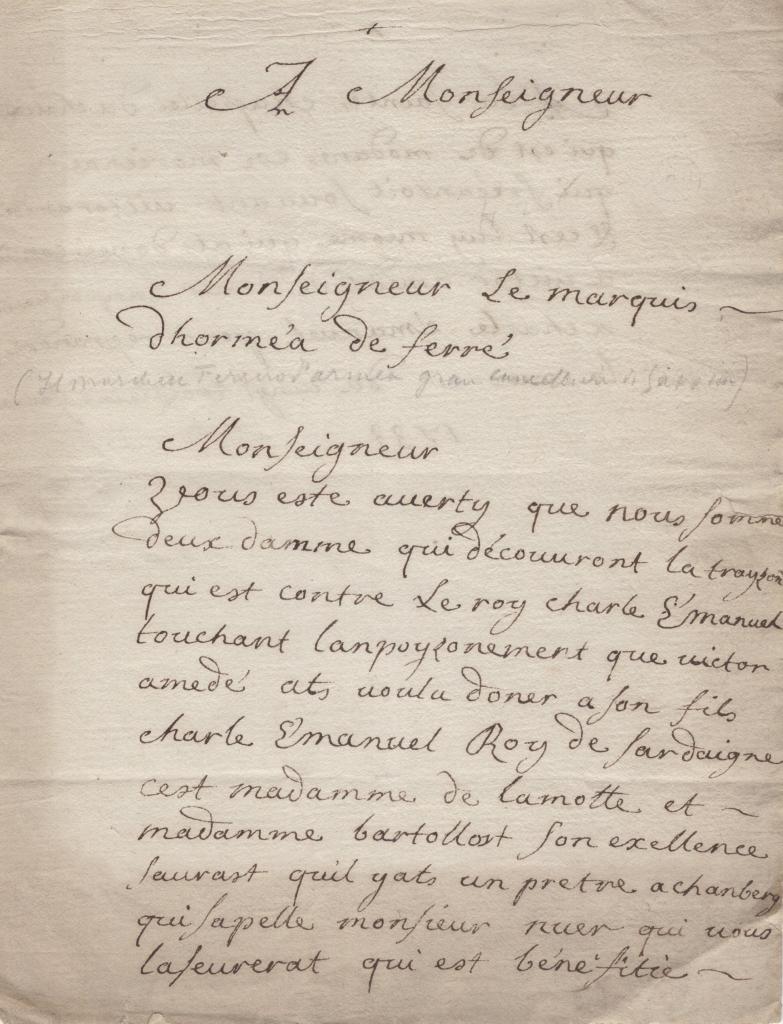 A Monseigneur
Monseigneur Le marquis
dhorméa de ferré
Monseigneur
vous este auerty que nous somme
deux damme qui découuront la trayzon
qui est contre Le roy charle Émanuel
touchant lanpoyzonement que uictor
amedé ats uoulu doner a son fils
charle Émanuel Roy de sardaigne
cest madamme de lamotte et
madamme bartollost son exellence
saurast quil yats un pretre a chanbery
qui sapelle monsieur nuer qui uous
laseurerat qui est bénefitié